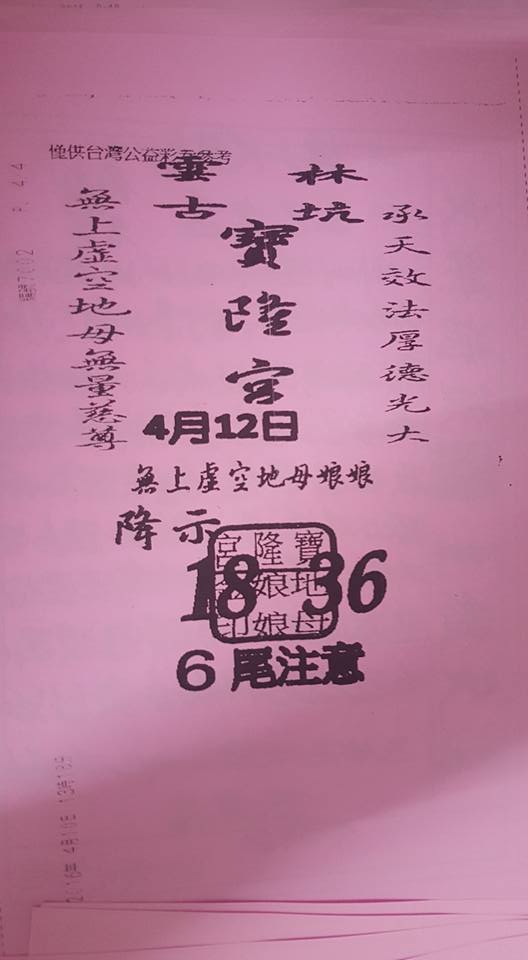 僅供台灣公益彩券參考
雲林
古坑
寶隆宮
承天效法厚德光大
無上虛空地母無量慈尊
4月12日
無上虛空地母娘娘
降示
寶隆宮
地娘
母娘印
18 36
6尾注意
2016年 4月10日